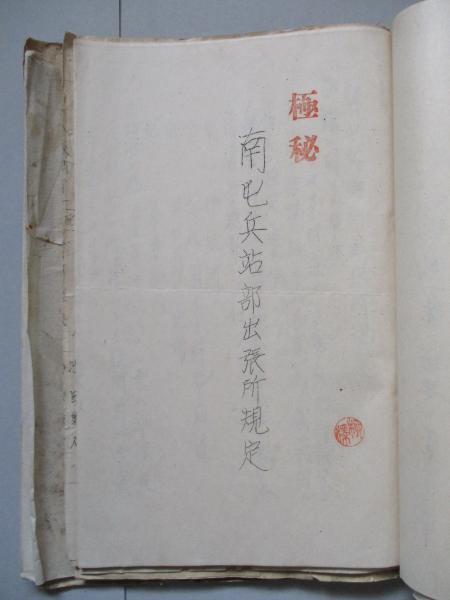 極秘
南屯兵站部出張所規定